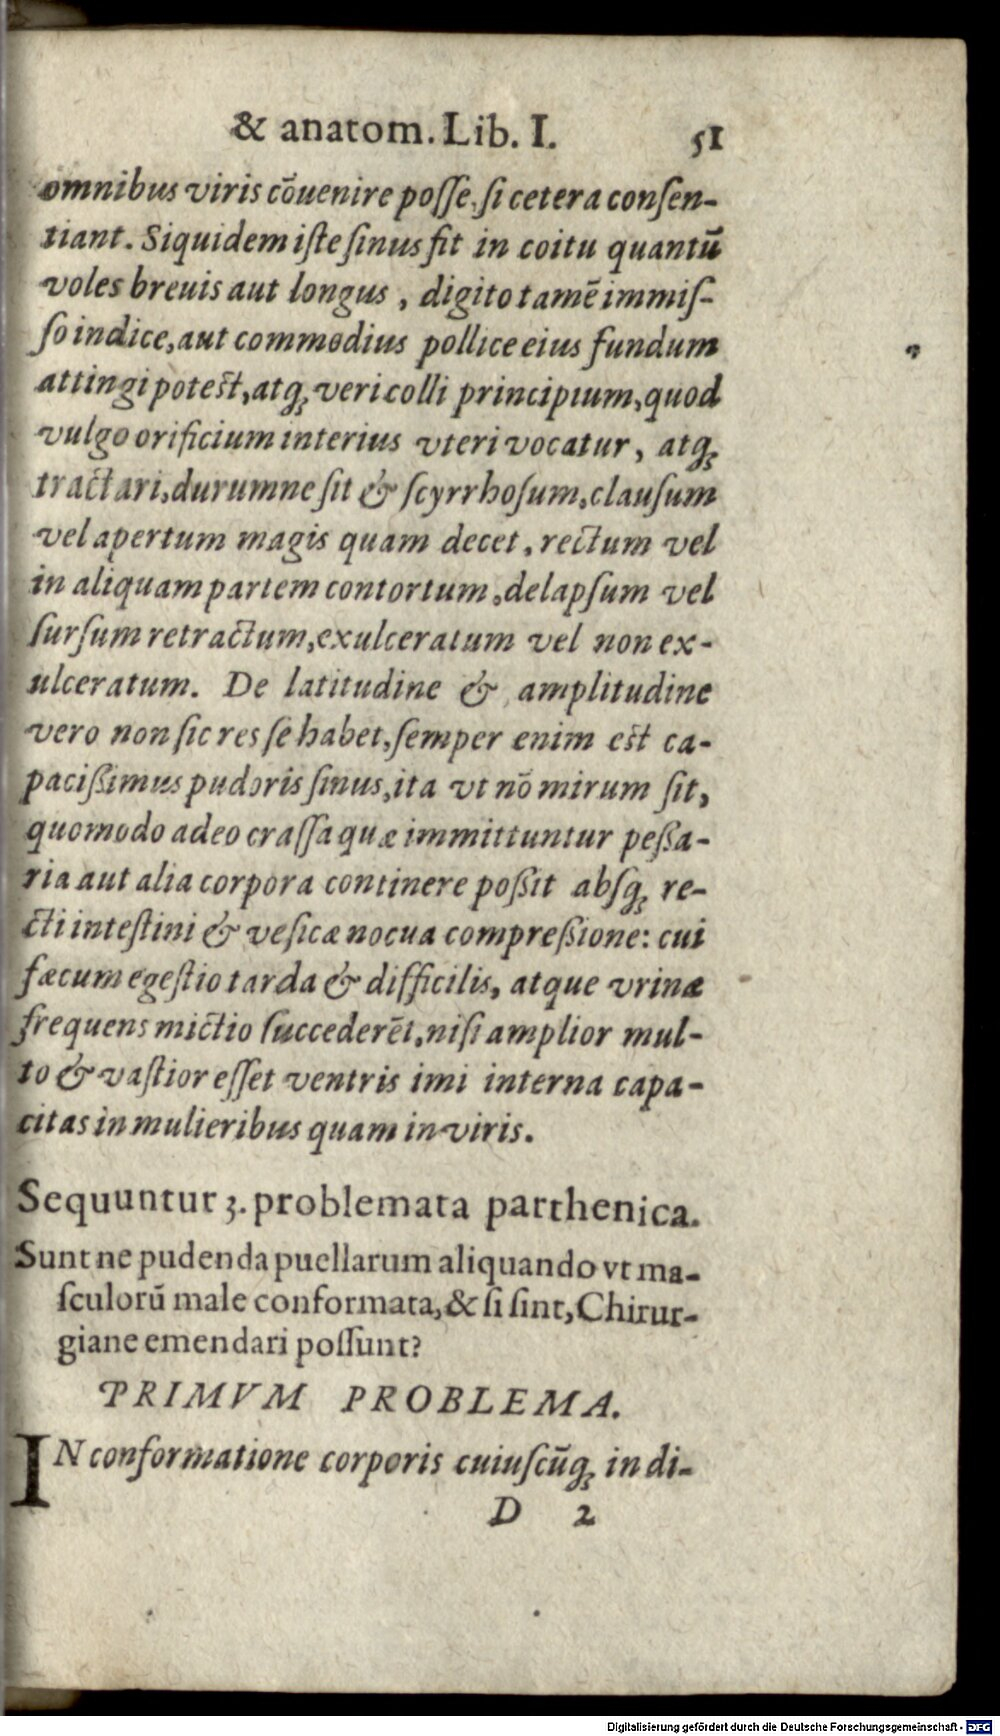 & anatom. Lib. I. 51
omnibus viris cōuenire poſſe, ſi cetera conſen-
tiant. Siquidem iſte ſinus fit in coitu quantū
voles breuis aut longus, digito tamē immiſ-
ſo indice, aut commodius pollice eius fundum
attingi poteſt, atq; veri colli principium, quod
vulgo orificium interius vteri vocatur, atq;
tractari, durumne ſit & ſcyrrhoſum, clauſum
vel apertum magis quam decet, rectum vel
in aliquam partem contortum, delapſum vel
ſurſum retractum, exulceratum vel non ex-
ulceratum. De latitudine & amplitudine
vero non ſic res ſe habet, ſemper enim eſt ca-
pacißimus pudoris ſinus, ita vt nō mirum ſit,
quomodo adeo craſſa quæ immittuntur peßa-
ria aut alia corpora continere poßit abſq; re-
cti inteſtini & veſicæ nocua compreßione: cui
fæcum egeſtio tarda & difficilis, atque vrinæ
frequens mictio ſuccederēt, niſi amplior mul-
to & vaſtior eſſet ventris imi interna capa-
citas in mulieribus quam in viris.
Sequuntur 3. problemata parthenica.
Sunt ne pudenda puellarum aliquando vt ma-
ſculorū male conformata, & ſi ſint, Chirur-
giane emendari poſſunt?
PRIMVM PROBLEMA.
IN conformatione corporis cuiuſcūq; in di-
D 2
Digitalisierung gefördert durch die Deutsche Forschungsgemeinschaft - DFG